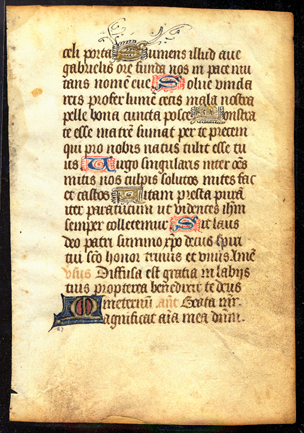 celi porta Sumens illud aue
gabrielis ore funda nos in pace mu
tans nomē eue Solue vincla
reis profer lumē cecis mala nostra
pelle bona cuncta posce Monstra
te esse matrē sumat per te precem
qui pro nobis natus tulit esse tu
us Uirgo singularis inter oēs
mitis nos culpis solutos mites fac
et castos Uitam presta purā
iter para tutum ut videntes ihm
semper colletemur Sit laus
deo patri summo xpo decus spiri
tui sco honor trinus et vnus. Amē
vsus Diffusa est gratia in labijs
tuis propterea benedixit te deus
in eternum añt Beata mr.
Magnificat aīa mea dnm.